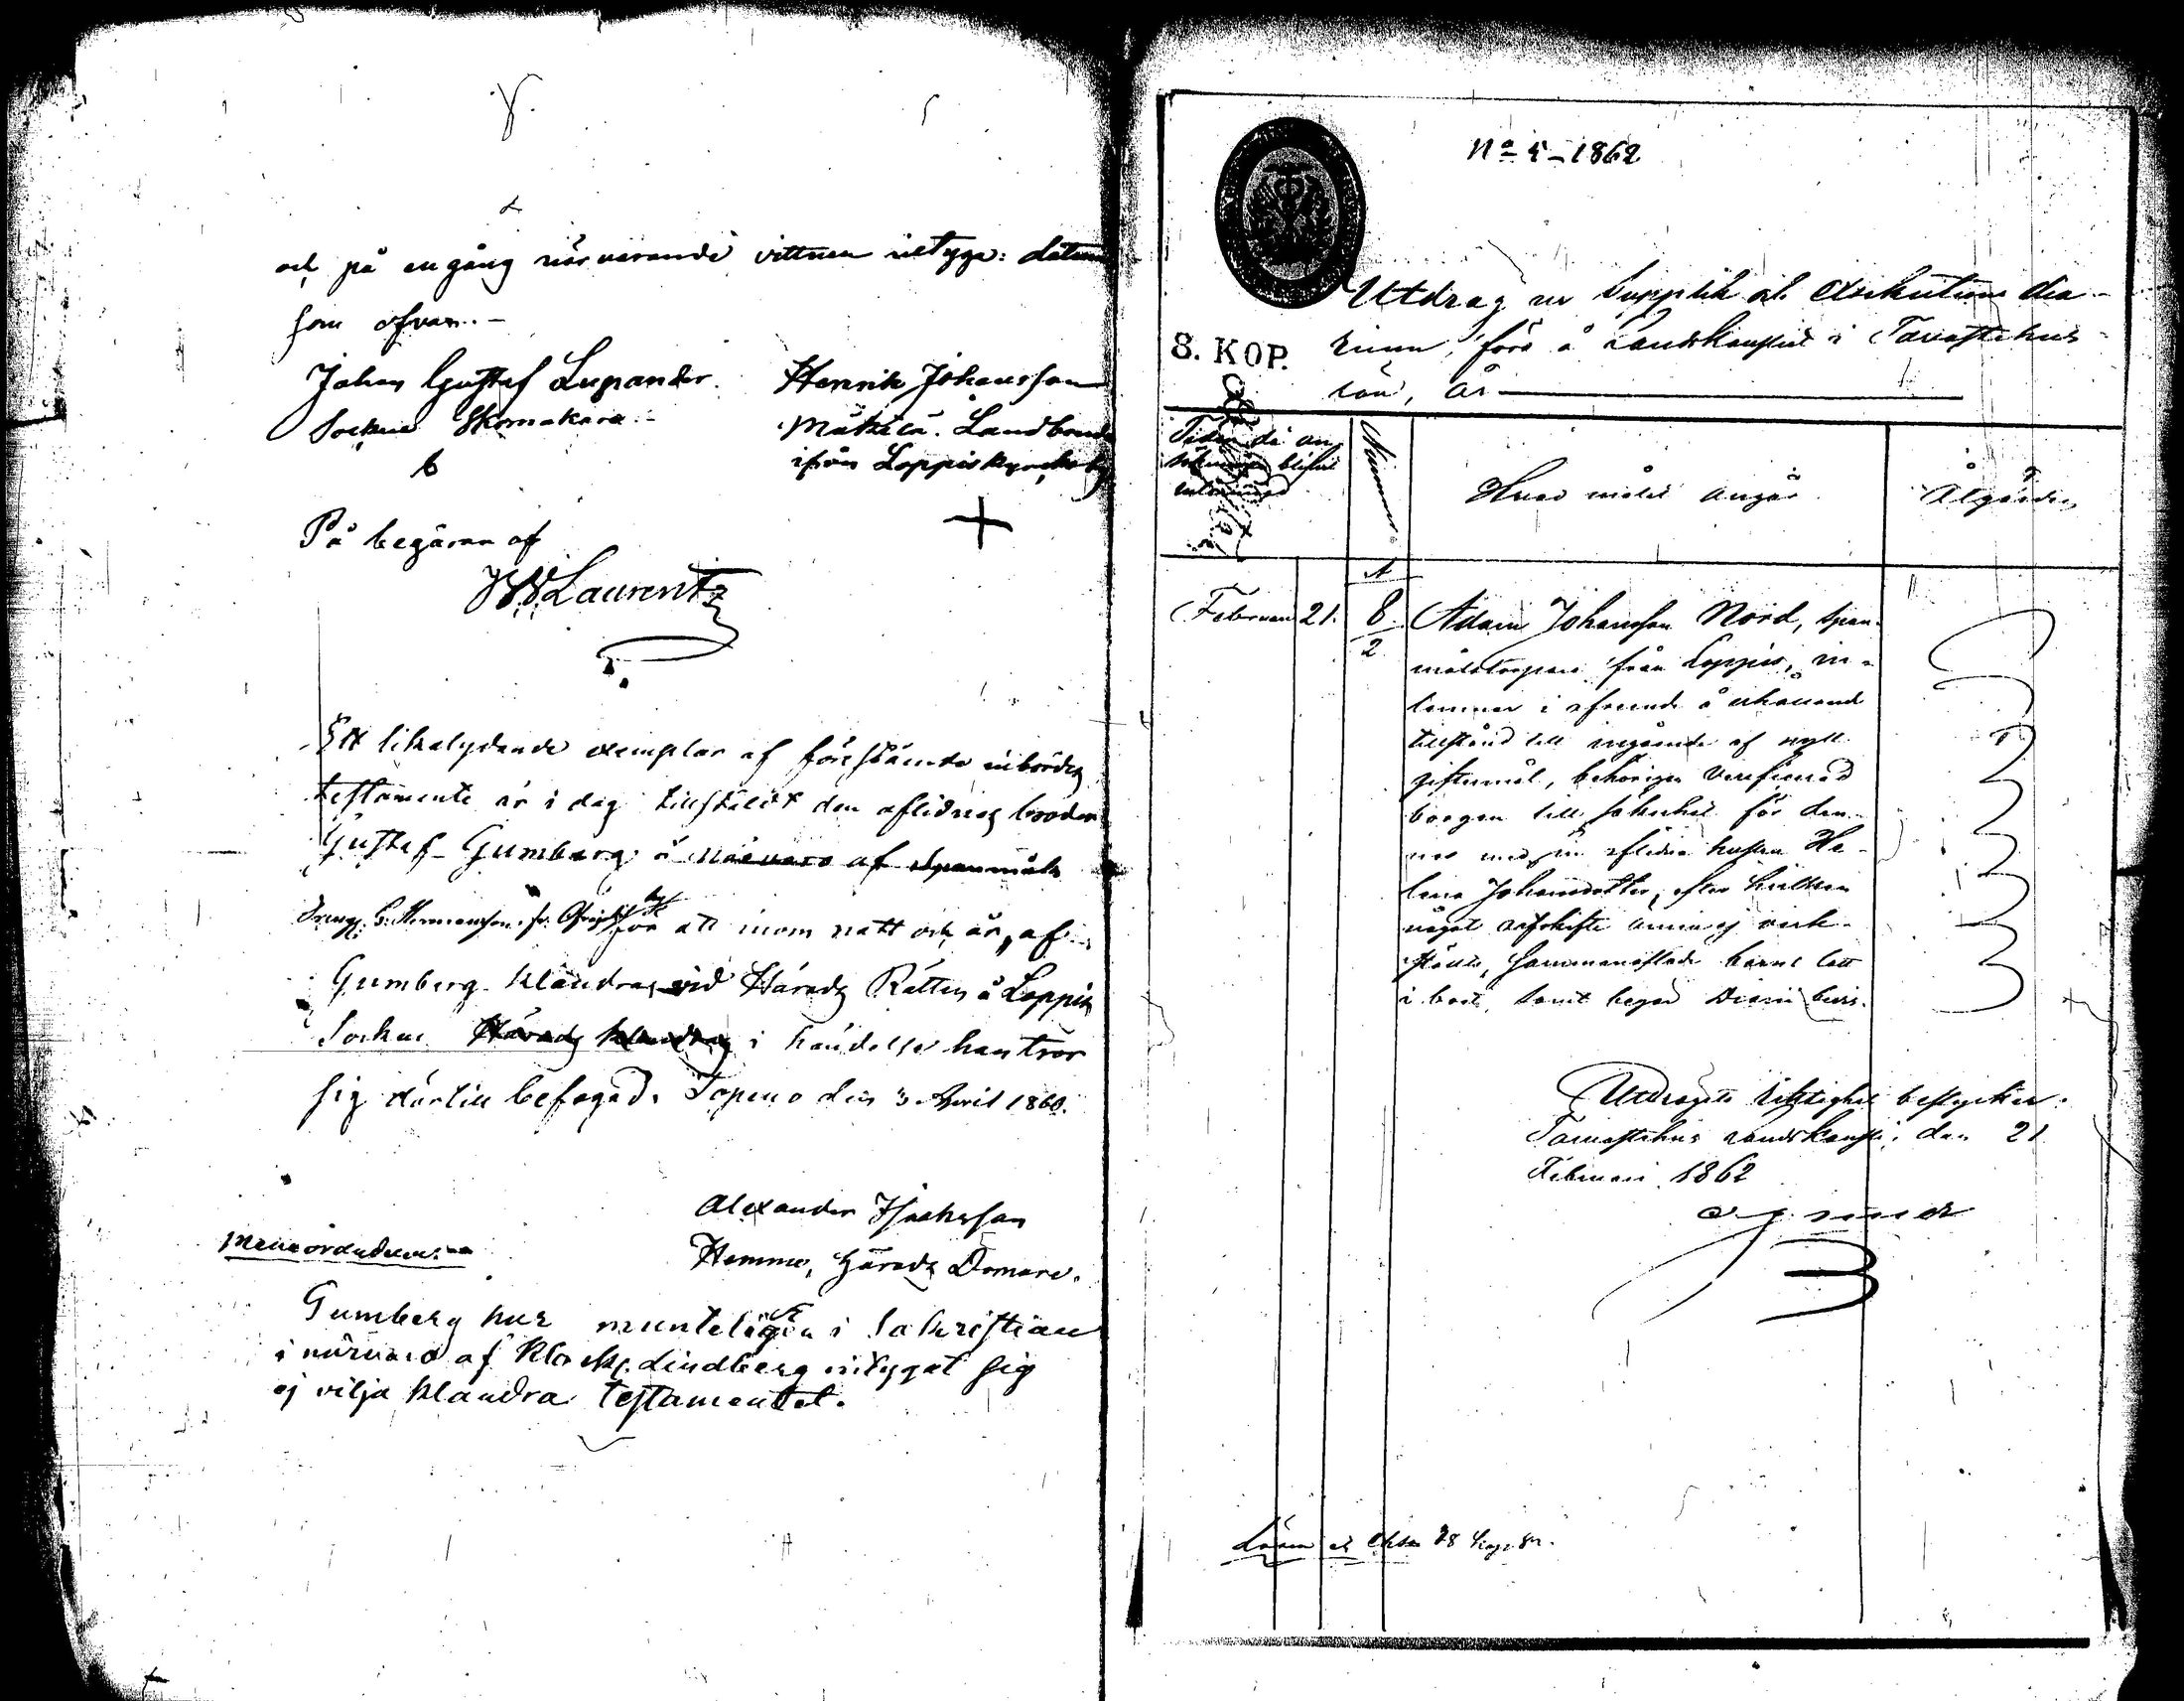 och på en gång närvarande vittnen intyga: datum
som ofvan.-
Johan Gustaf Lupander.
Sockne Skomakare
Henrik Johansson
Mattila. Landbonde
ifrån Loppis kyrkoby
På begäran af
JW Laurentz
Ett likalydande exemplar af förestående inbördes
testamente är i dag tillstäldt den aflidnes broder
Gustaf Gumberg i närvaro af Spanmåls
Torp. G. Hermansson fr. för att inom natt och år, af
Gumberg klandras vid Härads Rätten i Loppis
Socken i händelse han tror
sig därtill befogad. Topeno den 3 April 1860.
Alexander Isaksson
Hemme, Härads Domare.
Memorandum:
Gumberg har munteligen i Sakristian
i närvaro af Klock. Lindberg intygat sig
ej vilja klandra testamentet.
No 5-1862
Utdrag ur Supplik och Exekutions dia-
rium, fördt å Landskansliet i Tavastehus
län, år
8. KOP.
Tiden då an
sökningen blifvit
inlemnad
Nummer
Hvad målet angår
Åtgärden
A
Februari 21.
8
2
Adam Johansson Nord, span-
målstorpare från Loppis, in-
lemnar i afseende å erhållande
tillstånd till ingående af nytt
giftermål, behörigen verificerad
borgen till säkerhet för den-
nes med sin aflidna hustru He-
lena Johansdotter, efter hvilken
något arfskifte ännu ej verk-
stälts, sammanaflade barns lott
i boet, samt begär Diarii bevis.
Utdragets riktighet bestyrker.
Tavastehus Landskansli, den 21
Februari 1862